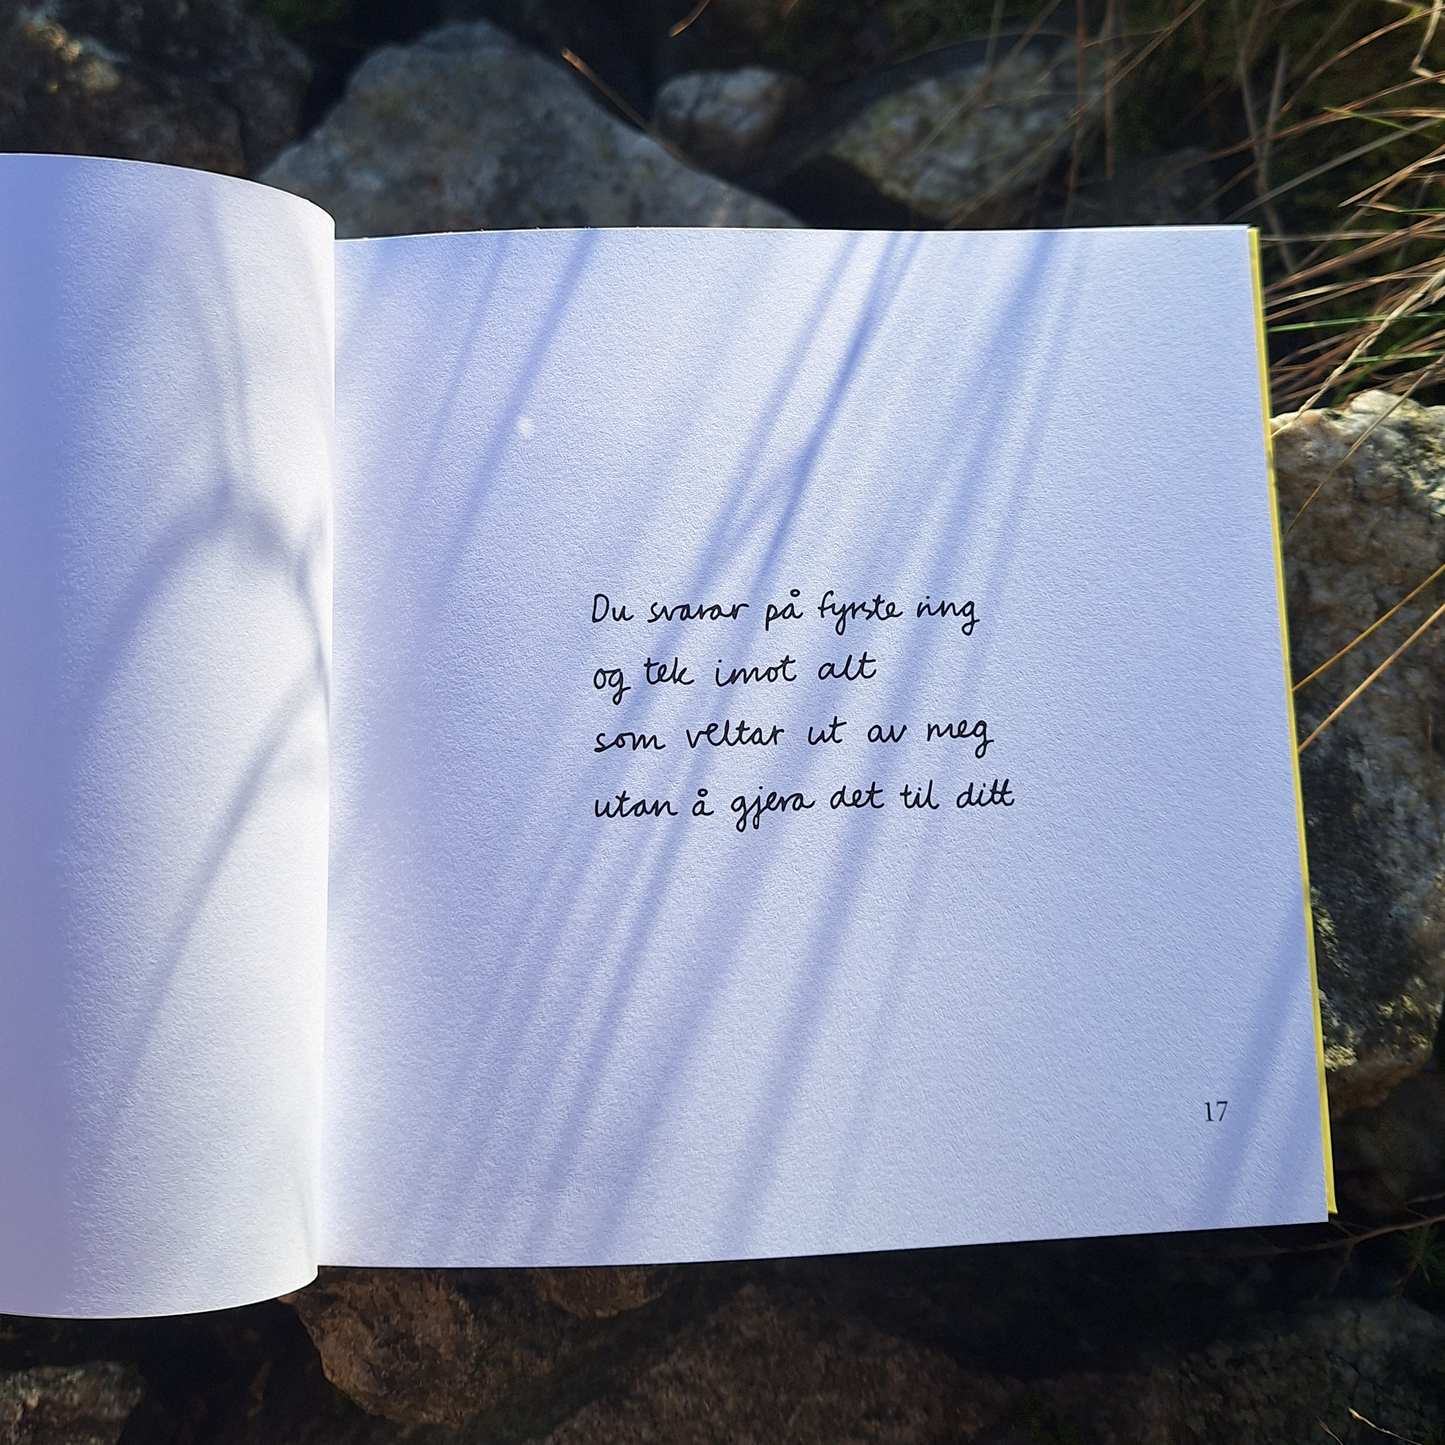 Du svarar på fyrste ring
og tek imot alt
som veltar ut av meg
utan å gjera det til ditt
17